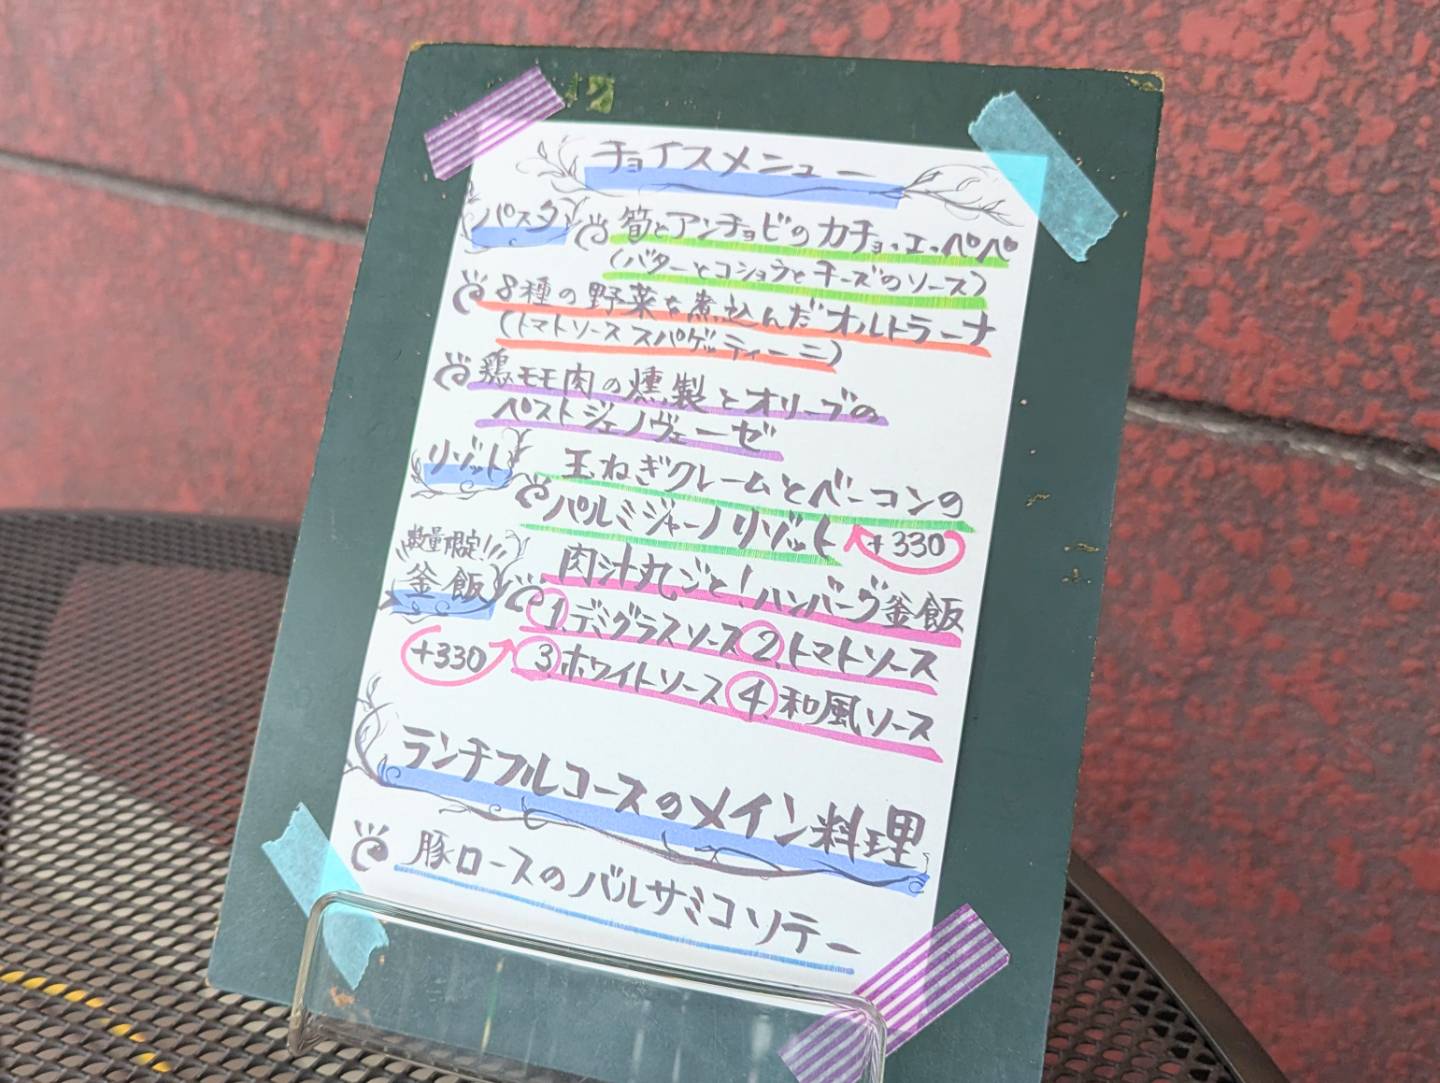 チョイスメニュー
パスタ 筍とアンチョビのカチョ・エ・ペペ
(バターとコショウとチーズのソース)
8種の野菜を煮込んだオルトラーナ
(トマトソース スパゲッティーニ)
鶏モモ肉の燻製とオリーブの
ペストジェノヴェーゼ
リゾット 玉ねぎクレームとベーコンの
パルミジャーノリゾット +330
数量限定!!
釜飯 肉汁丸ごと!ハンバーグ釜飯
1.デミグラスソース 2.トマトソース
+330 3.ホワイトソース 4.和風ソース
ランチフルコースのメイン料理
豚ロースのバルサミコソテー